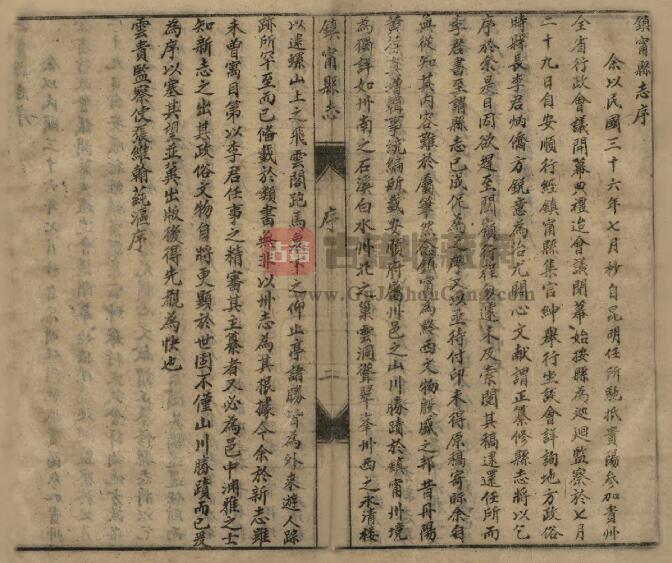 鎮甯縣志序
余以民國三十六年七月杪自昆明任所馳抵貴陽參加貴州
全省行政會議開幕典禮迨會議閉幕始按縣為巡迴監察於七月
二十九日自安順行經鎮甯縣集官紳舉行坐談會詳詢地方政俗
時縣長李君炳僑方銳意為治尤關心文献謂正纂修縣志將以乞
序於余是日因欲趕至關嶺 未及索閱其稿還任所而
李君書至謂縣志已成促為之序又以亟待付印未得原稿寄眎余自
無從知其内容難於屬筆然念鎮甯為黔西文物殷盛之邦昔丹陽
黃 統編所載安順府屬州邑之山川勝蹟於鎮甯州境
為獨詳如州南之石溪白水州北之巢雲洞聳翠峯州西之水清橋
以逮螺山上之飛雲閣跑馬 之仰止亭諸勝皆為外來遊人踪
跡所罕至而已備載於類書無非以州志為其根據今余於新志雖
未曾寓目第以李君任事之精審其主纂者又必為邑中淵雅之士
知新志之出其政俗文物自將更顯於世固不僅山川勝蹟而已爰
為序以塞其望並冀出版後得先覩為快也
雲貴監察使張維翰蒓漚序
鎮甯縣志
序
二
古籍收藏网
www.GuJiShouCang.com